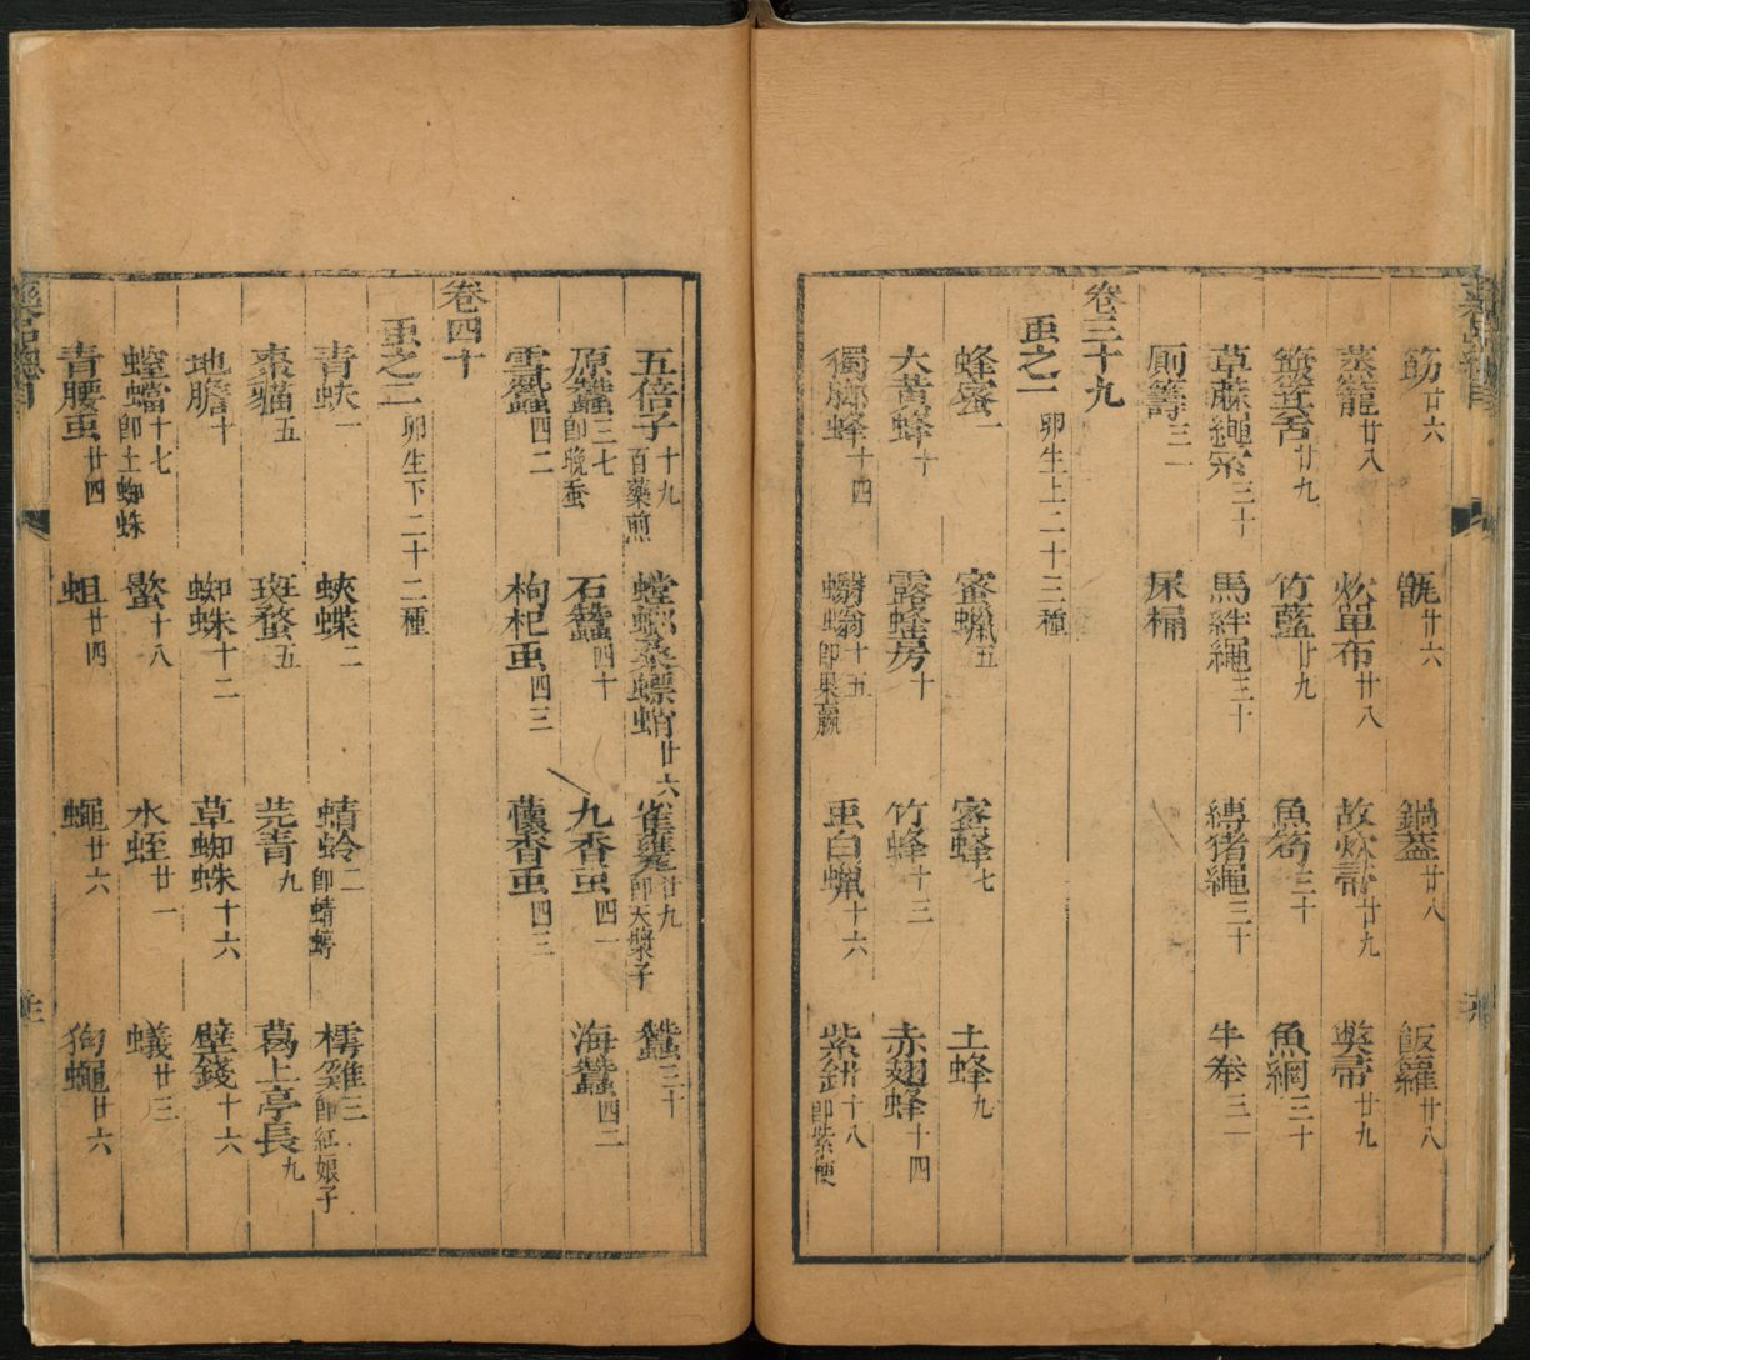 筯廿六 甑廿六 鍋蓋廿八 飯籮廿八
蒸籠廿八 炊單布廿八 故炊帚廿九 獘帚廿九
簸箕舌廿九 竹藍廿九 魚笱三十 魚網三十
草麻繩索三十 馬絆繩三十 縛猪繩三十 牛桊三一
厠籌三一 屎桶
卷三十九
虫之一 卵生上二十三種
蜂蜜一 蜜蠟五 蜜蜂七 土蜂九
大黃蜂十 露蜂房十 竹蜂十三 赤翅蜂十四
獨腳蜂十四 蠮螉十五即果蠃 虫白蠟十六 紫鉚十八即紫梗
五倍子十九百藥煎 螳螂桑螵蛸廿六 雀甕廿九即天漿子 蠶三十
原蠶三七即晚蚕 石蠶四十 九香虫四一 海蠶四二
雪蠶四二 枸杞虫四三 蘹香虫四三
卷四十
虫之二 卵生下二十二種
青蚨一 蛺蝶二 蜻蛉二即蜻蜓 樗雞三即紅娘子
棗貓五 斑蝥五 芫青九 葛上亭長九
地膽十 蜘蛛十二 草蜘蛛十六 壁錢十六
螲蟷十七即土蜘蛛 蠍十八 水蛭廿一 蟻廿三
青腰虫廿四 蛆廿四 蠅廿六 狗蠅廿六